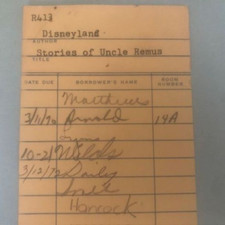 R413
Disneyland
AUTHOR
Stories of Uncle Remus
TITLE
DATE DUE BORROWER'S NAME ROOM NUMBER
Matthew
3/11/92 Arnold 19A
10-21 Wilds
3/12/92 Daily
Hancock